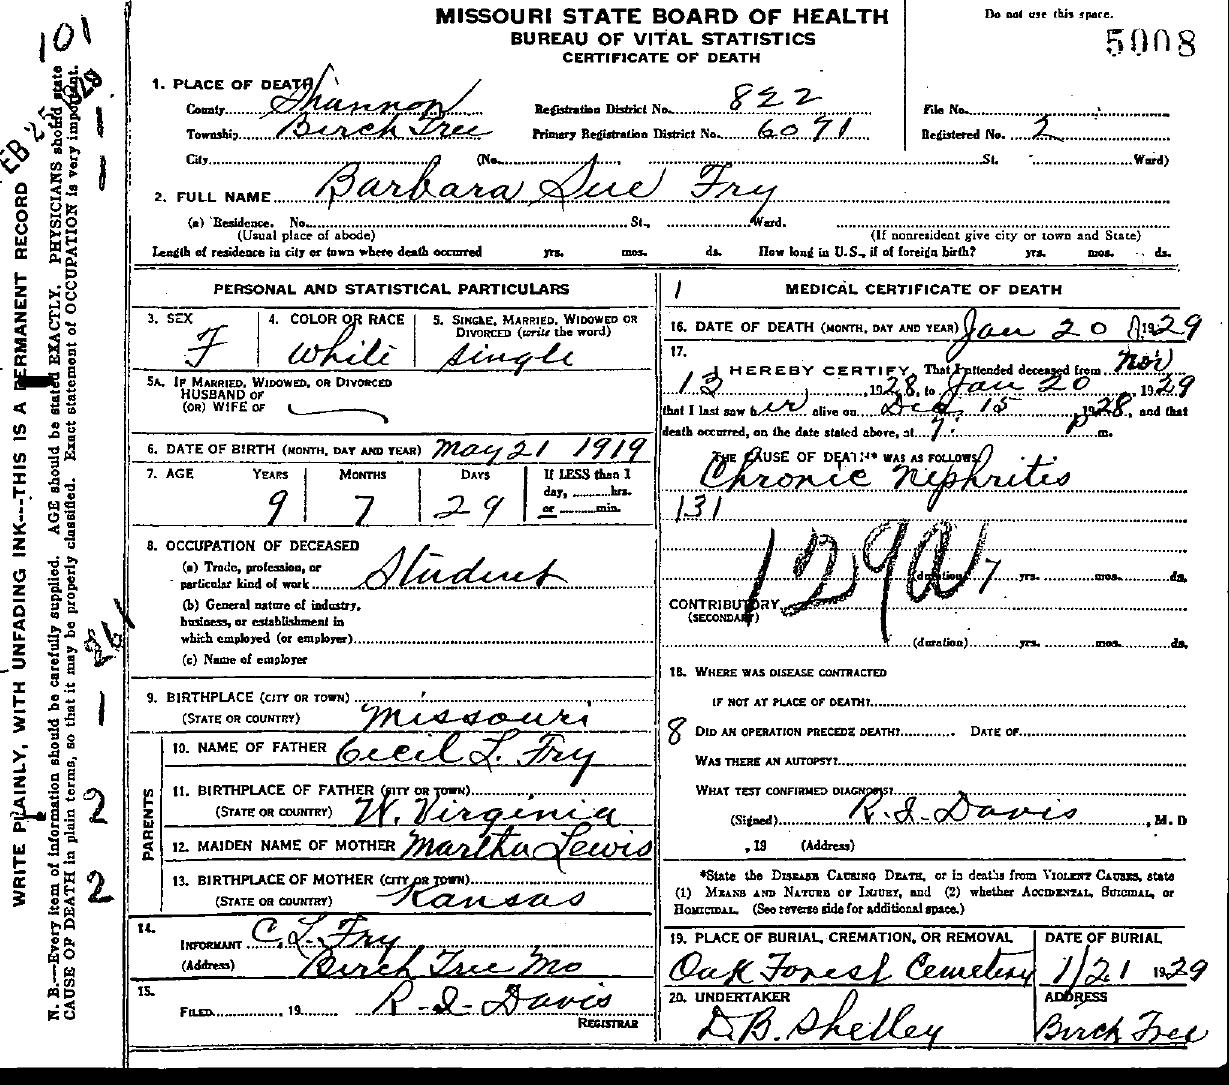 MISSOURI STATE BOARD OF HEALTH
BUREAU OF VITAL STATISTICS
CERTIFICATE OF DEATH
Do not use this space.
5008
101
FEB 25 1929
WRITE PLAINLY, WITH UNFADING INK---THIS IS A PERMANENT RECORD
N. B.—Every item of information should be carefully supplied. AGE should be stated EXACTLY. PHYSICIANS should state
CAUSE OF DEATH in plain terms, so that it may be properly classified. Exact statement of OCCUPATION is very important.
1
2
2
1. PLACE OF DEATH
County Shannon Registration District No. 822 File No.
Township Birch Tree Primary Registration District No. 6071 Registered No. 2
City (No. St. Ward)
2. FULL NAME Barbara Sue Fry
(a) Residence. No. St., Ward.
(Usual place of abode) (If nonresident give city or town and State)
Length of residence in city or town where death occurred yrs. mos. ds. How long in U.S., if of foreign birth? yrs. mos. ds.
PERSONAL AND STATISTICAL PARTICULARS
3. SEX F
4. COLOR OR RACE White
5. SINGLE, MARRIED, WIDOWED OR DIVORCED (write the word) Single
5A. IF MARRIED, WIDOWED, OR DIVORCED
HUSBAND OF
(OR) WIFE OF
6. DATE OF BIRTH (MONTH, DAY AND YEAR) May 21 1919
7. AGE YEARS MONTHS DAYS If LESS than 1
day, hrs.
or min.
9 7 29
8. OCCUPATION OF DECEASED
(a) Trade, profession, or
particular kind of work Student
(b) General nature of industry,
business, or establishment in
which employed (or employer)
(c) Name of employer
9. BIRTHPLACE (CITY OR TOWN)
(STATE OR COUNTRY) Missouri
PARENTS
10. NAME OF FATHER Cecil L. Fry
11. BIRTHPLACE OF FATHER (CITY OR TOWN)
(STATE OR COUNTRY) W. Virginia
12. MAIDEN NAME OF MOTHER Martha Lewis
13. BIRTHPLACE OF MOTHER (CITY OR TOWN)
(STATE OR COUNTRY) Kansas
14.
INFORMANT C. L. Fry
(Address) Birch Tree Mo
15.
FILED , 19 R-I-Davis
REGISTRAR
1 MEDICAL CERTIFICATE OF DEATH
16. DATE OF DEATH (MONTH, DAY AND YEAR) Jan 20 1929
17.
I HEREBY CERTIFY, That I attended deceased from Nov
13, 1928, to Jan 20 1929
that I last saw her alive on Dec. 15 1928, and that
death occurred, on the date stated above, at 7 P m.
THE CAUSE OF DEATH* WAS AS FOLLOWS
Chronic Nephritis
131
129a
(duration) 7 yrs. mos. ds.
CONTRIBUTORY
(SECONDARY)
(duration) yrs. mos. ds.
18. WHERE WAS DISEASE CONTRACTED
IF NOT AT PLACE OF DEATH?
8 DID AN OPERATION PRECEDE DEATH? DATE OF
WAS THERE AN AUTOPSY?
WHAT TEST CONFIRMED DIAGNOSIS?
(Signed) R.I. Davis, M. D
, 19 (Address)
*State the DISEASE CAUSING DEATH, or in deaths from VIOLENT CAUSES, state
(1) MEANS AND NATURE OF INJURY, and (2) whether ACCIDENTAL, SUICIDAL, or
HOMICIDAL. (See reverse side for additional space.)
19. PLACE OF BURIAL, CREMATION, OR REMOVAL DATE OF BURIAL
Oak Forest Cemetery 1/21 1929
20. UNDERTAKER ADDRESS
D.B. Shelley Birch Tree